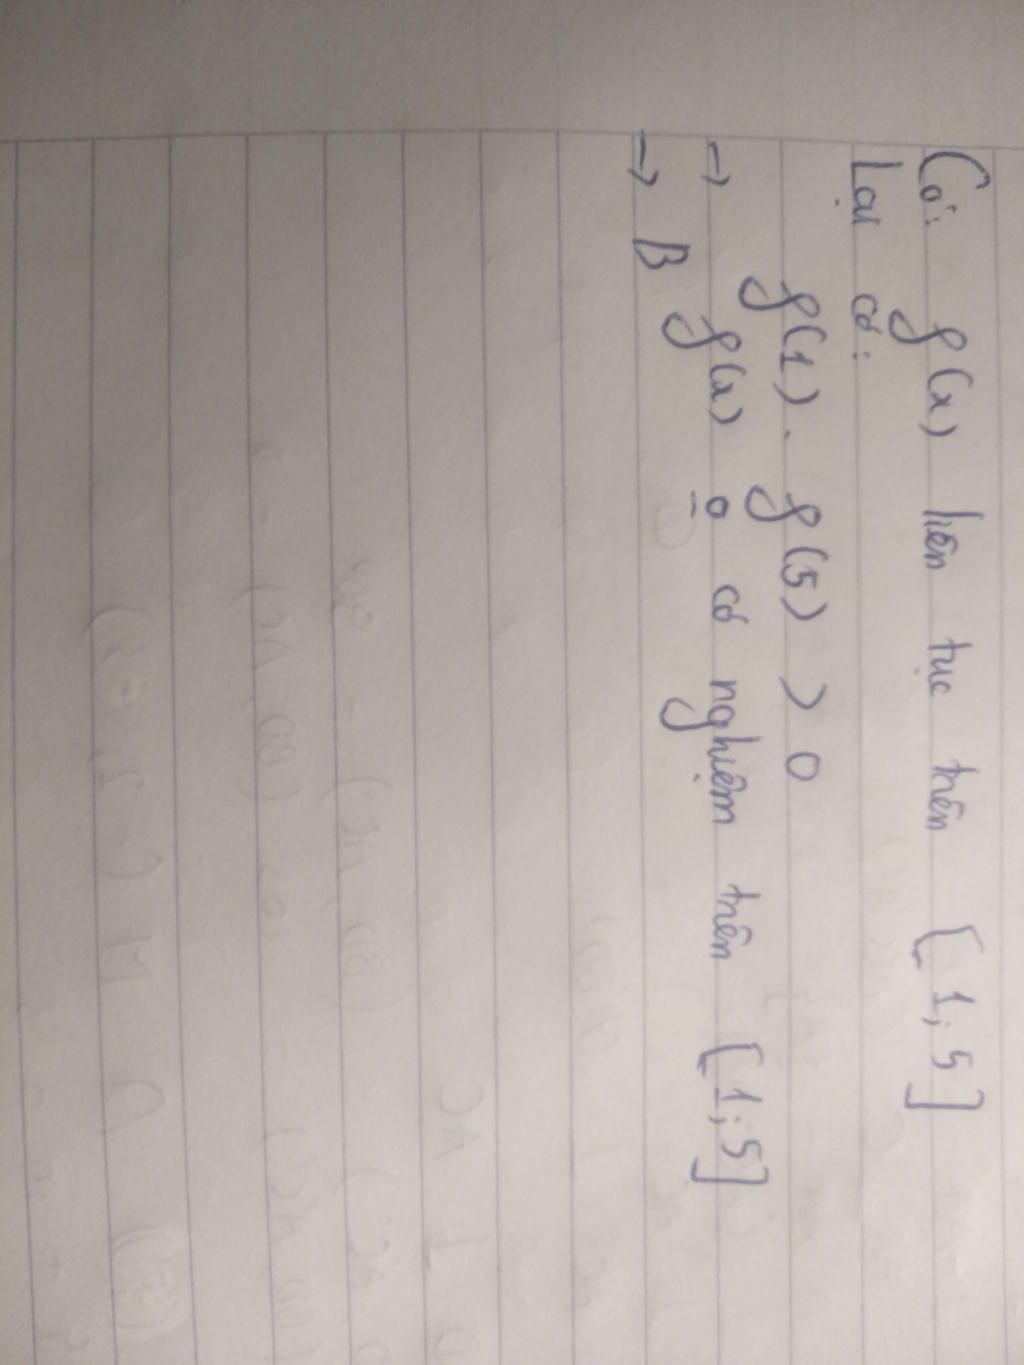 Có: f(x) liên tục trên [1; 5]
Lại có:
f(1). f(5) > 0
→ f(x) o̲ có nghiệm trên [1; 5]
→ B